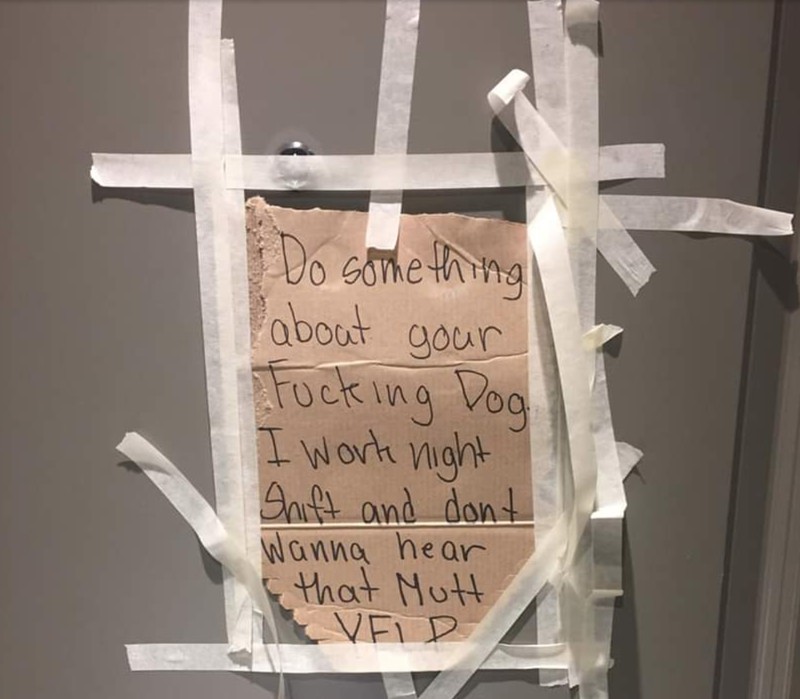 Do something
about your
Fucking Dog.
I work night
Shift and dont
wanna hear
that Mutt
YELP